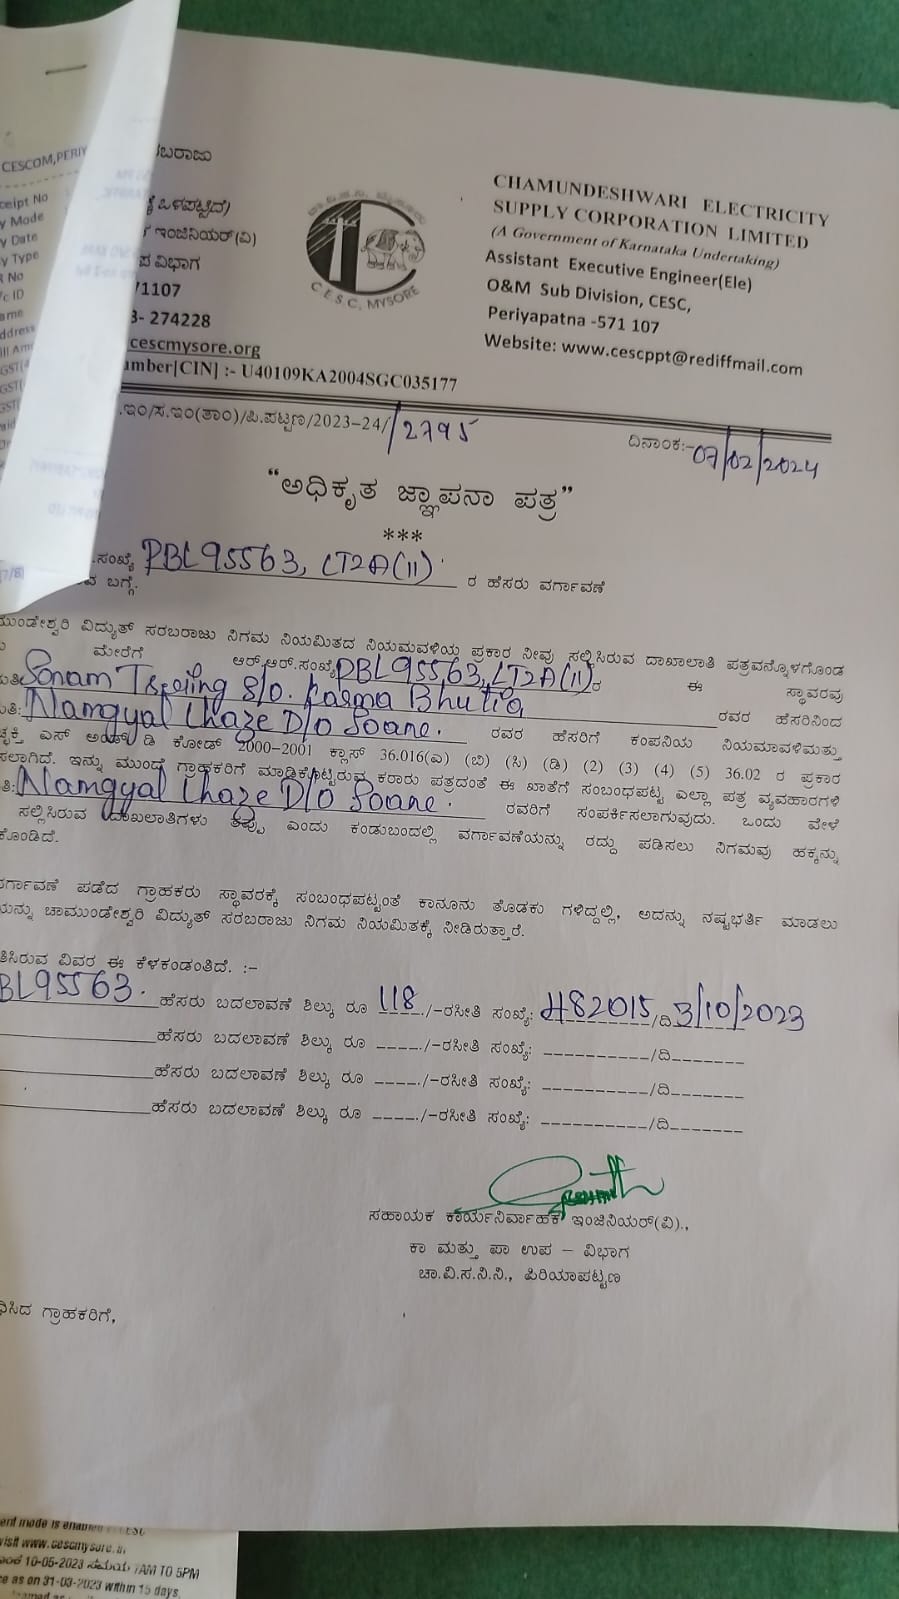 CESCOM,PERIY
ceipt No
y Mode
y Date
y Type
R No
/c ID
ame
ddress
ಬರಾಜು
ಒಳಪಟ್ಟಿದೆ)
ಇಂಜಿನಿಯರ್(ವಿ)
ಪ ವಿಭಾಗ
/1107
3- 274228
cescmysore.org
mber[CIN] :- U40109KA2004SGC035177
C.E.S.C, MYSORE
CHAMUNDESHWARI ELECTRICITY
SUPPLY CORPORATION LIMITED
(A Government of Karnataka Undertaking)
Assistant Executive Engineer(Ele)
O&M Sub Division, CESC,
Periyapatna -571 107
Website: www.cescppt@rediffmail.com
.ಇಂ/ಸ.ಇಂ(ತಾಂ)/ಪಿ.ಪಟ್ಟಣ/2023-24/ 2795
ದಿನಾಂಕ:- 07/02/2024
“ಅಧಿಕೃತ ಜ್ಞಾಪನಾ ಪತ್ರ”
***
.ಸಂಖ್ಯೆ PBL95563, LT2A(II) ರ ಹೆಸರು ವರ್ಗಾವಣೆ
ಬಗ್ಗೆ.
ಮುಂಡೇಶ್ವರಿ ವಿದ್ಯುತ್ ಸರಬರಾಜು ನಿಗಮ ನಿಯಮಿತದ ನಿಯಮವಳಿಯ ಪ್ರಕಾರ ನೀವು ಸಲ್ಲಿಸಿರುವ ದಾಖಾಲಾತಿ ಪತ್ರವನ್ನೊಳಗೊಂಡ
ಮೇರೆಗೆ ಆರ್.ಆರ್.ಸಂಖ್ಯೆ PBL95563, LT2A(II) ರ ಈ ಸ್ಥಾವರವು
Sonam Tsering S/o. Kasma Bhutia ರವರ ಹೆಸರಿನಿಂದ
Namgyal Lhaze D/o Soane. ರವರ ಹೆಸರಿಗೆ ಕಂಪನಿಯ ನಿಯಮಾವಳಿಮತ್ತು
ಎಸ್ ಅಂಡ್ ಡಿ ಕೋಡ್ 2000-2001 ಕ್ಲಾಸ್ 36.016(ಎ) (ಬಿ) (ಸಿ) (ಡಿ) (2) (3) (4) (5) 36.02 ರ ಪ್ರಕಾರ
ಸಲಾಗಿದೆ. ಇನ್ನು ಮುಂದೆ ಗ್ರಾಹಕರಿಗೆ ಮಾಡಿಕೊಟ್ಟಿರುವ ಕರಾರು ಪತ್ರದಂತೆ ಈ ಖಾತೆಗೆ ಸಂಬಂಧಪಟ್ಟ ಎಲ್ಲಾ ಪತ್ರ ವ್ಯವಹಾರಗಳಿ
Namgyal Lhaze D/o Soane. ರವರಿಗೆ ಸಂಪರ್ಕಿಸಲಾಗುವುದು. ಒಂದು ವೇಳೆ
ಸಲ್ಲಿಸಿರುವ ದಾಖಲಾತಿಗಳು ತಪ್ಪು ಎಂದು ಕಂಡುಬಂದಲ್ಲಿ ವರ್ಗಾವಣೆಯನ್ನು ರದ್ದು ಪಡಿಸಲು ನಿಗಮವು ಹಕ್ಕನ್ನು
ಕೊಂಡಿದೆ.
ವರ್ಗಾವಣೆ ಪಡೆದ ಗ್ರಾಹಕರು ಸ್ಥಾವರಕ್ಕೆ ಸಂಬಂಧಪಟ್ಟಂತೆ ಕಾನೂನು ತೊಡಕು ಗಳಿದ್ದಲ್ಲಿ, ಅದನ್ನು ನಷ್ಟಭರ್ತಿ ಮಾಡಲು
ಯನ್ನು ಚಾಮುಂಡೇಶ್ವರಿ ವಿದ್ಯುತ್ ಸರಬರಾಜು ನಿಗಮ ನಿಯಮಿತಕ್ಕೆ ನೀಡಿರುತ್ತಾರೆ.
ತಿಸಿರುವ ವಿವರ ಈ ಕೆಳಕಂಡಂತಿದೆ. :-
BL95563. ಹೆಸರು ಬದಲಾವಣೆ ಶಿಲ್ಕು ರೂ 118./-ರಸೀತಿ ಸಂಖ್ಯೆ: H82015/ದಿ 3/10/2023
ಹೆಸರು ಬದಲಾವಣೆ ಶಿಲ್ಕು ರೂ ____./-ರಸೀತಿ ಸಂಖ್ಯೆ: __________/ದಿ_______
ಹೆಸರು ಬದಲಾವಣೆ ಶಿಲ್ಕು ರೂ ____./-ರಸೀತಿ ಸಂಖ್ಯೆ: __________/ದಿ_______
ಹೆಸರು ಬದಲಾವಣೆ ಶಿಲ್ಕು ರೂ ____./-ರಸೀತಿ ಸಂಖ್ಯೆ: __________/ದಿ_______
ಸಹಾಯಕ ಕಾರ್ಯನಿರ್ವಾಹಕ ಇಂಜಿನಿಯರ್(ವಿ).,
ಕಾ ಮತ್ತು ಪಾ ಉಪ – ವಿಭಾಗ
ಚಾ.ವಿ.ಸ.ನಿ.ನಿ., ಪಿರಿಯಾಪಟ್ಟಣ
ಧಿಸಿದ ಗ್ರಾಹಕರಿಗೆ,
ent mode is enabled
visit www.cescmysore.in
10-05-2023 ಸಮಯ 7AM TO 5PM
e as on 31-03-2023 within 15 days.